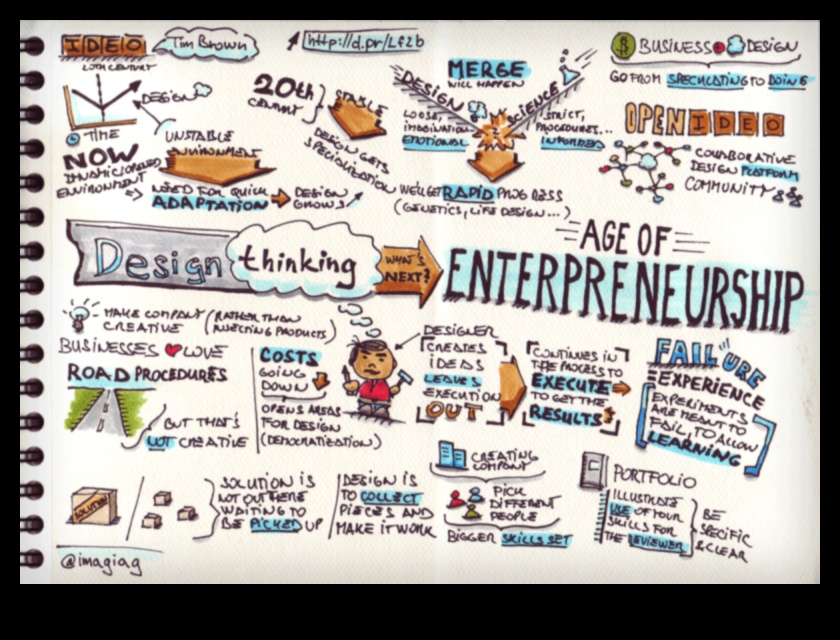 IDEO
Tim Brown
http://d.pr/LfZb
20TH CENTURY
DESIGN
TIME
UNSTABLE
ENVIRONMENT
NOW
ENVIRONMENT
NEED FOR QUICK
ADAPTATION
DESIGN
GROWS
20th
CENTURY
STABLE
DESIGN GETS
SPECIALISATION
MERGE
WILL HAPPEN
DESIGN
SCIENCE
LOOSE,
IMAGINATION
EMOTIONAL
STRICT,
PROCEDURES...
INFORMED
WE'LL GET RAPID PROGRESS
(GENETICS, LIFE DESIGN...)
$ BUSINESS + DESIGN
GO FROM SPECULATING TO DOING
OPENIDEO
COLABORATIVE
DESIGN PLATFORM
COMMUNITY
Design thinking
WHAT'S
NEXT?
AGE OF
ENTERPRENEURSHIP
MAKE COMPANY
CREATIVE
(RATHER THAN
INJECTING PRODUCTS)
BUSINESSES LOVE
ROAD PROCEDURES
BUT THAT'S
NOT CREATIVE
COSTS
GOING
DOWN
OPENS AREAS
FOR DESIGN
(DEMOCRATIZATION)
DESIGNER
CREATES
IDEAS
LEAVES
EXECUTION
OUT
CONTINUES IN
THE PROCESS TO
EXECUTE
TO GET THE
RESULTS
FAILURE
=EXPERIENCE
EXPERIMENTS
ARE MEANT TO
FAIL, TO ALLOW
LEARNING
SOLUTION
SOLUTION IS
NOT OUT THERE
WAITING TO
BE PICKED UP
DESIGN IS
TO COLLECT
PIECES AND
MAKE IT WORK
CREATING
COMPANY
PICK
DIFFERENT
PEOPLE
BIGGER SKILLS SET
PORTFOLIO
ILLUSTRATE
USE OF YOUR
SKILLS FOR
THE REVIEWER
BE
SPECIFIC
& CLEAR
@imagiag